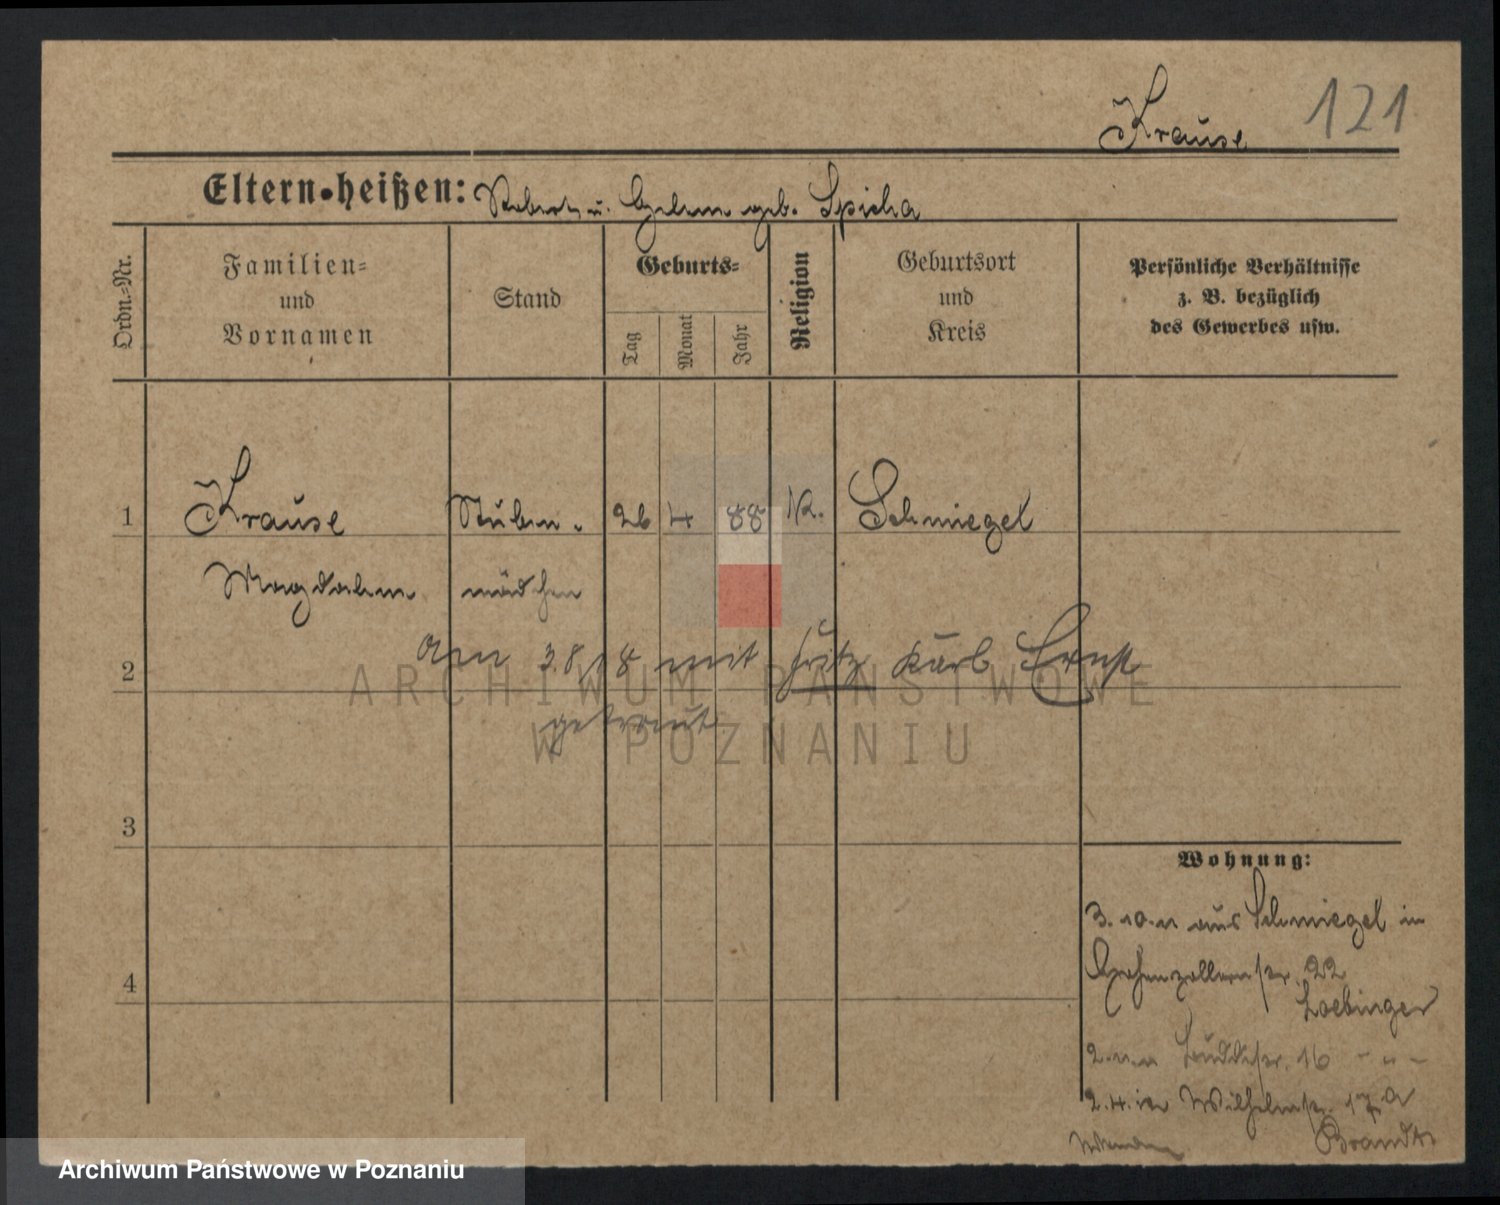 Krause 121
Eltern heißen: Robert u. Helene geb. Spicha
Ordn.-Nr.
Familien-
und
Vornamen
Stand
Geburts-
Tag
Monat
Jahr
Religion
Geburtsort
und
Kreis
Persönliche Verhältnisse
z. B. bezüglich
des Gewerbes usw.
1 Krause Stuben- 26 4 88 K. Schmiegel
Magdalene mädchen
am 3.8.18 mit Fritz Karl Ernst
2
getraut
3
Wohnung:
3. 10. 11 aus Schmiegel in
4
Hohenzollernstr. 22
Loebinger
2. 16 - " -
2. 4. Wilhelmstr. 17a
Brandt
ARCHIWUM PAŃSTWOWE
W POZNANIU
Archiwum Państwowe w Poznaniu